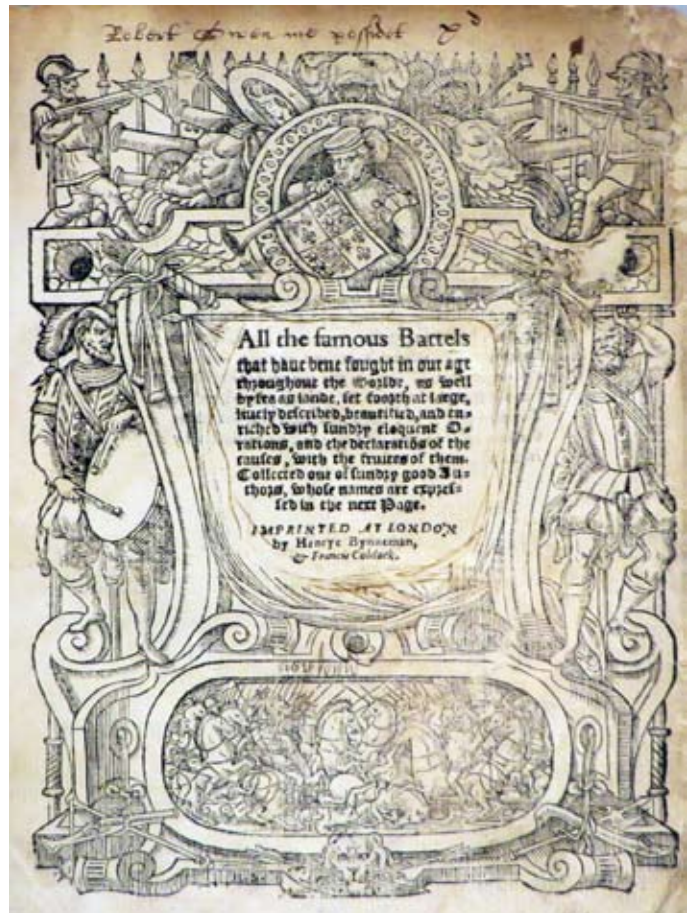 Robert Owen me possidet
All the famous Battels
that haue bene fought in our age
throughout the worlde, as well
by sea as lande, set foorth at large,
liuely described, beautified, and en-
riched with sundry eloquent O-
rations, and the declaratiōs of the
causes, with the fruites of them.
Collected out of sundry good Au-
thors, whose names are expres-
sed in the next Page.
IMPRINTED AT LONDON
by Henrye Bynneman,
& Francis Coldock.